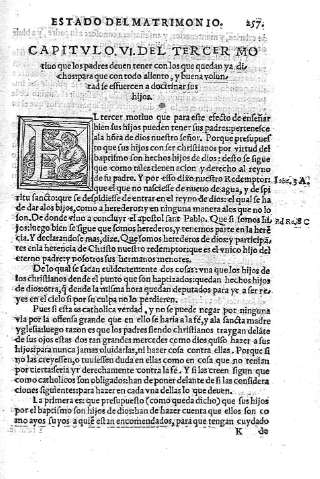 ESTADO DEL MATRIMONIO. 257.
CAPITVLO. VI. DEL TERCER MO
tiuo que los padres deuen tener con los que quedan ya di-
chos: para que con todo aliento, y buena volun-
tad se esfuercen a doctrinar sus
hijos.
EL tercer motiuo que para este efecto de enseñar
bien sus hijos pueden tener sus padres: pertenesce
a la hōra de dios nuestro señor. Porque presupues
to que sus hijos con ser christianos por virtud del
baptismo son hechos hijos de dios: desto se sigue
que como tales tienen acion y derecho al reyno
de su padre. Y por esso dixo nuestro Redemptor:
que el que no nasciesse de nueuo de agua, y de spi
ritu sancto: que se despidiesse de entrar en el reyno de dios: el qual se ha
de dar a los hijos, como a herederos: y en ninguna manera a los que no lo
son. De donde vino a concluyr el apostol sant Pablo. Que si somos hi
jos: luego bien se sigue que somos herederos, y tenemos parte en la herē
cia. Y declarandose mas, dize. Que somos herederos de dios: y participā
tes en la herencia de Christo nuestro redemptor: que es el vnico hijo del
eterno padre: y nosotros sus hermanos menores.
De lo qual se sacan euidentemente dos cosas: vna que los hijos de
los christianos dende el punto que son baptizados: quedan hechos hijos
de dios: otra, q̄ dende la misma hora quedan deputados para yr a ser re-
yes en el cielo si por su culpa no lo perdieren.
Pues si esta es catholica verdad, y no se puede negar por ninguna
via por la offensa grande que en ello se haria a la fè, y a la sancta madre
yglesia: luego razon es que los padres siendo christianos traygan delāte
de sus ojos estas dos tan grandes mercedes como dios quiso hazer a sus
hijos: para nunca jamas oluidarlas, ni hazer cosa contra ellas. Porque si
no las creyessen, o tuuiessen duda en ellas como en cosa que no tenian
por cierta: seria yr derechamente contra la fè. Y si los creen siguen que
como catholicos son obligados: han de poner delante de si las considera
ciones siguientes: para hazer en cada vna dellas lo que deuen.
La primera es: que presupuesto (como queda dicho) que sus hijos
por el baptismo son hijos de dios: han de hazer cuenta que ellos son co
mo ayos suyos a quiē estan encomendados, para que tengan cuydado
K de